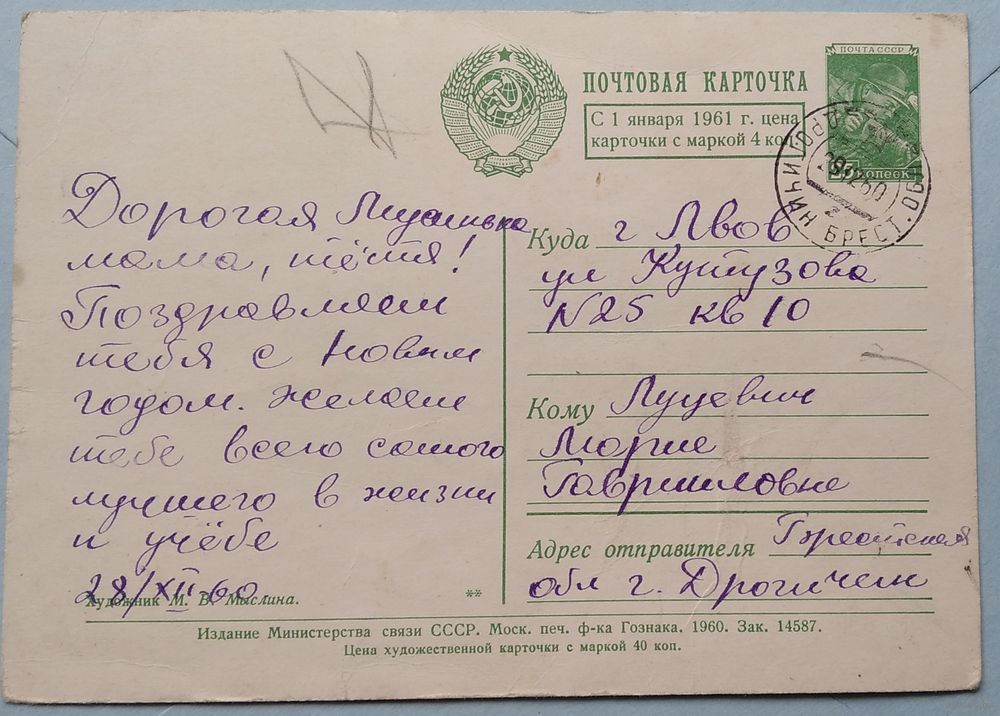 ПОЧТА СССР
ПОЧТОВАЯ КАРТОЧКА
С 1 января 1961 г. цена
карточки с маркой 4 коп.
копеек
БРЕСТ. ОБЛ
Дорогая
мама, тётя!
Поздравляем
тебя с Новым
годом. Желаем
тебе всего самого
лучшего в жизни
и учёбе
28/XII 60
Куда г Львов
ул Кутузова
N25 кв 10
Кому Луцевич
Марие
Гавриловне
Адрес отправителя Брестская
обл г. Дрогичин
Художник М. В. Мыслина.
**
Издание Министерства связи СССР. Моск. печ. ф-ка Гознака. 1960. Зак. 14587.
Цена художественной карточки с маркой 40 коп.